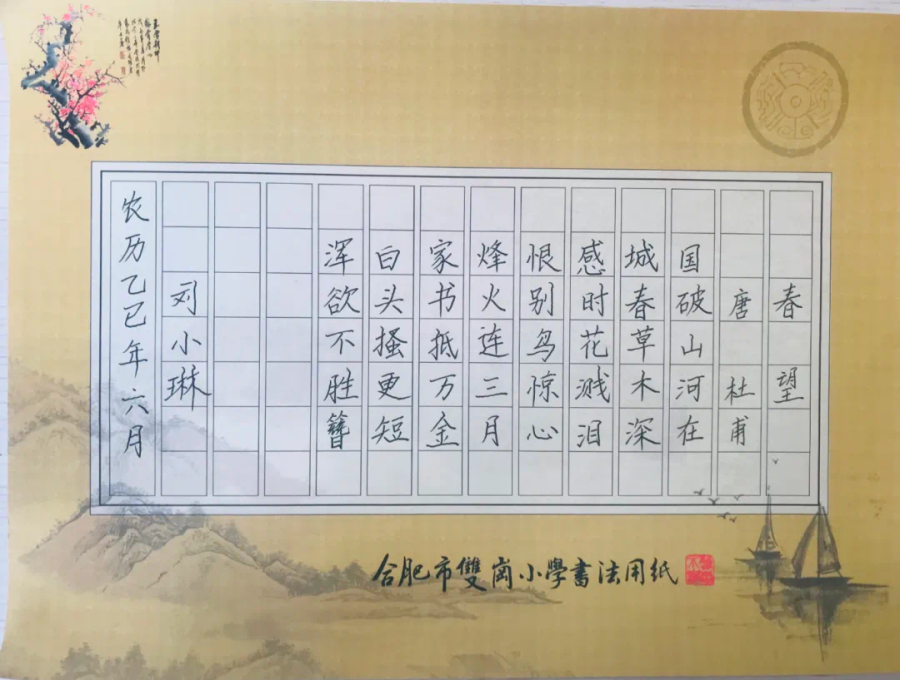 春望
唐 杜甫
国破山河在
城春草木深
感时花溅泪
恨别鸟惊心
烽火连三月
家书抵万金
白头搔更短
浑欲不胜簪
刘小琳
农历乙巳年六月
合肥市雙崗小學書法用紙